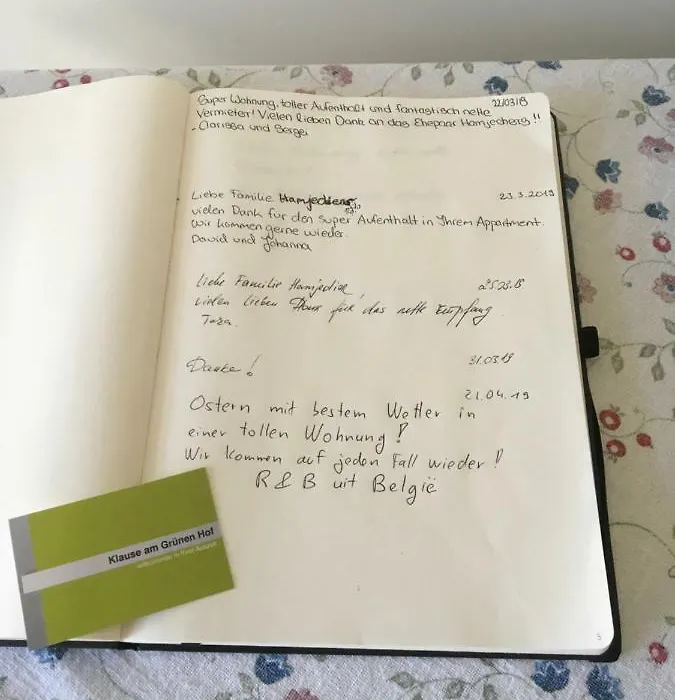 Super Wohnung, toller Aufenthalt und fantastisch nette 22/03/19
Vermieter! Vielen lieben Dank an das Ehepaar Hamjediers!!
- Clarissa und Serge
Liebe Familie Hamjediers, 23.3.2019
vielen Dank für den super Aufenthalt in Ihrem Appartment.
Wir kommen gerne wieder.
David und Johanna
Liebe Familie
vielen lieben Dank für das nette Empfang
Danke! 31.03.19
21.04.19
Ostern mit bestem Wetter in
einer tollen Wohnung!
Wir kommen auf jeden Fall wieder!
R & B uit België
Klause am Grünen Hof
5